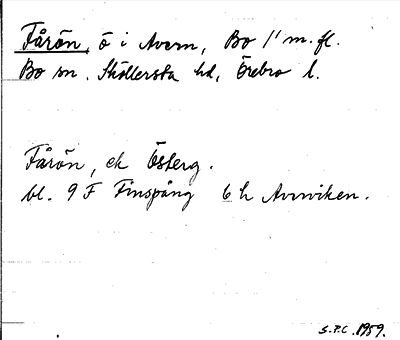 Fårön, ö i Avern, Bo 1¹ m.fl.
Bo sn. Sköllersta hd, Örebro l.
Fårön, ek Österg.
bl. 9 F Finspång 6 h Avrviken.
S.P.C. 1959.